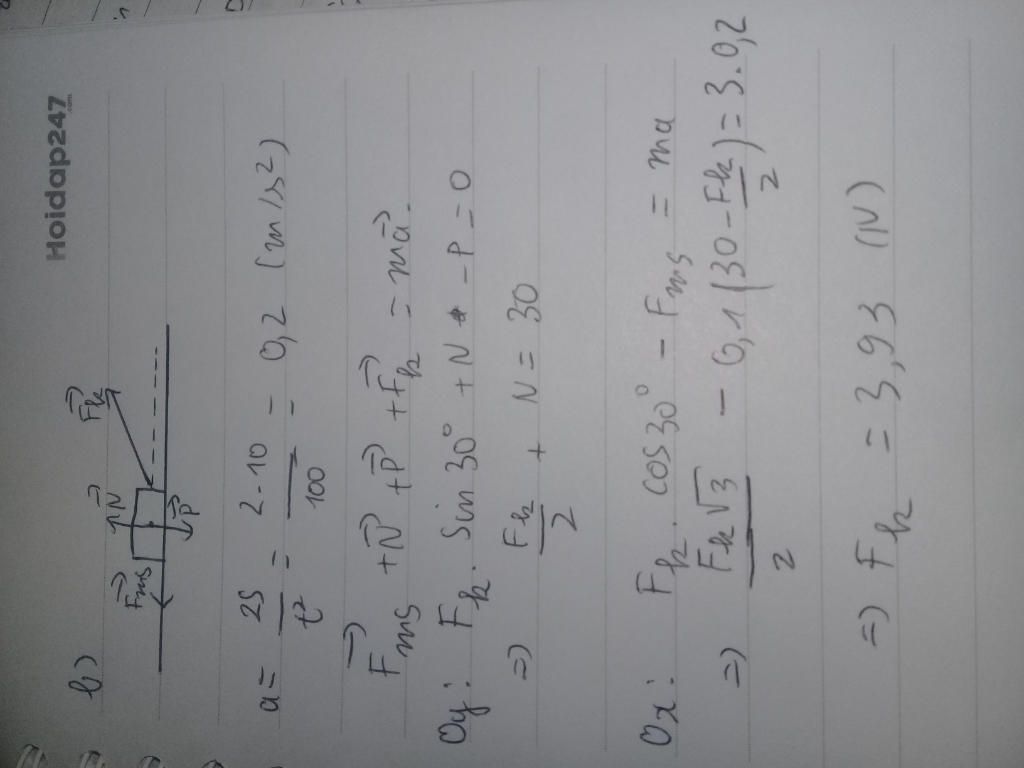 Hoidap247
.com
b)
Fms→ N→ P→ Fk→
a = 2S/t² = 2.10/100 = 0,2 (m/s²)
Fms→ + N→ + P→ + Fk→ = ma→.
Oy: Fk. Sin30° + N - P = 0
=) Fk/2 + N = 30
Ox: Fk. cos30° - Fms = ma
=) Fk√3/2 - 0,1(30 - Fk/2) = 3.0,2
=) Fk = 3,93 (N)